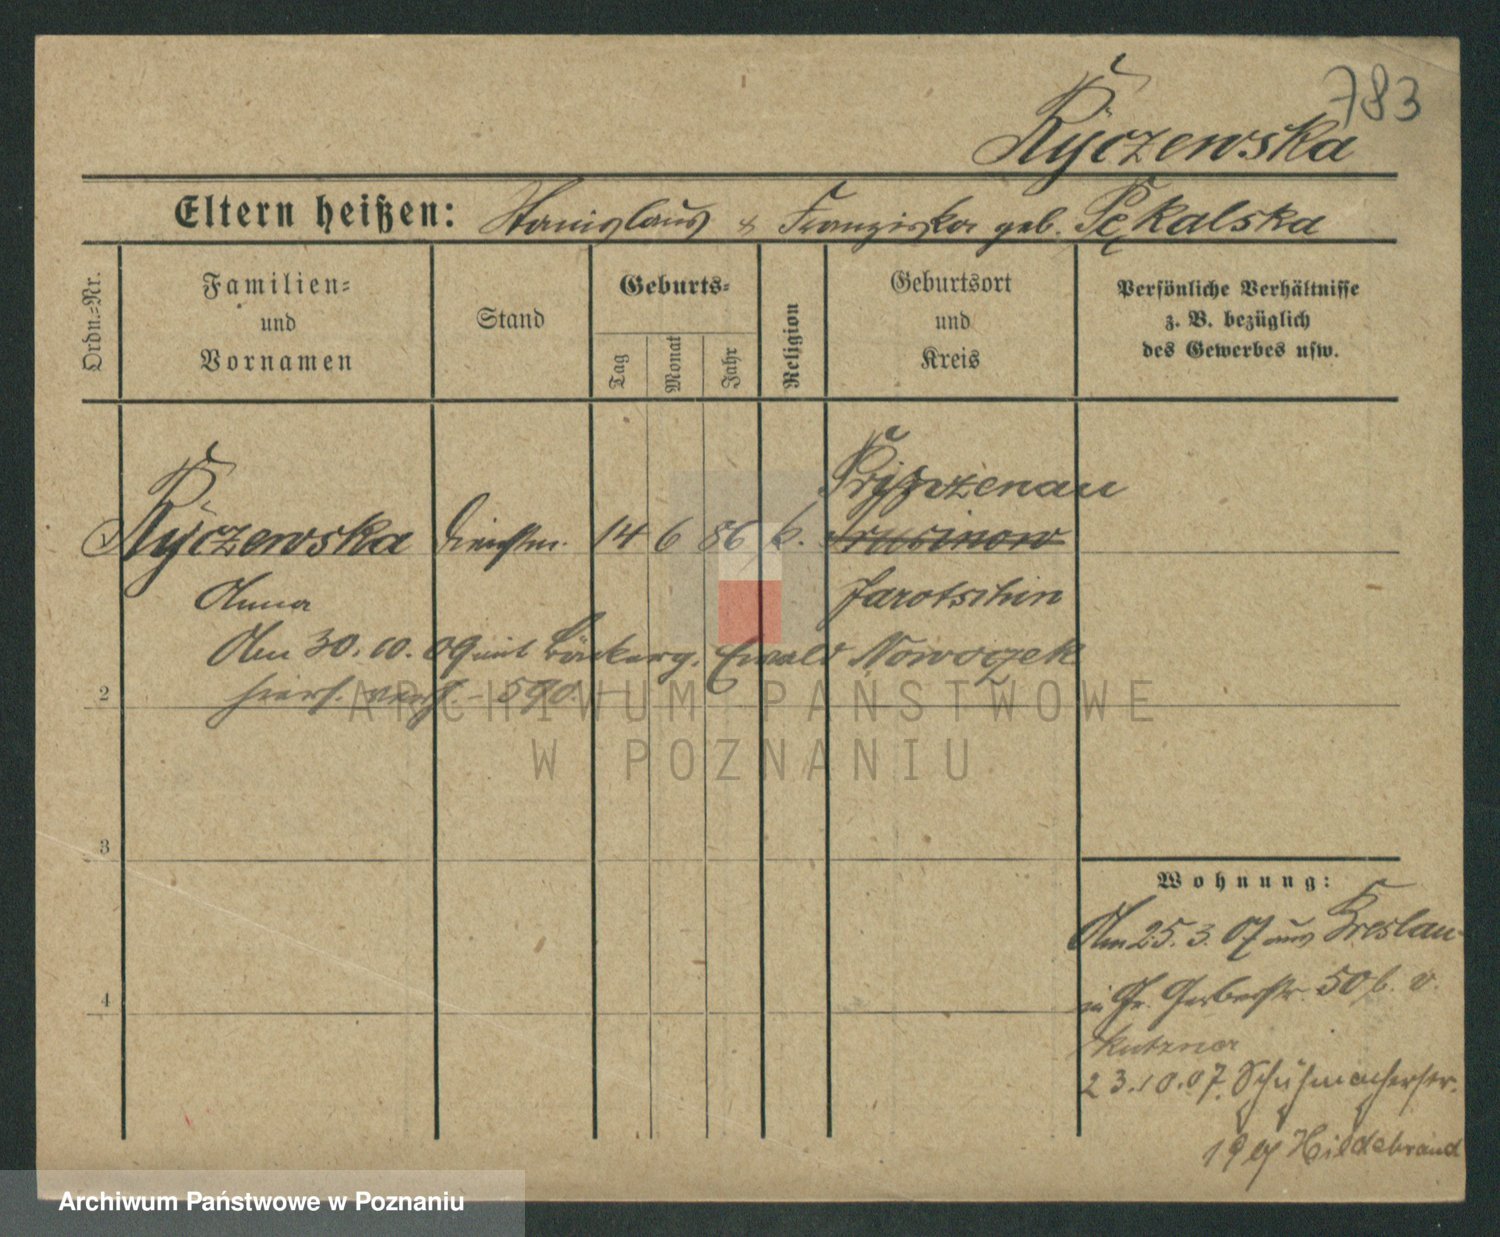 783
Ryczewska
Eltern heißen: Stanislaus & Franziska geb. Pękalska
Ordn.-Nr.
Familien-
und
Vornamen
Stand
Geburts-
Tag
Monat
Jahr
Religion
Geburtsort
und
Kreis
Persönliche Verhältnisse
z. B. bezüglich
des Gewerbes usw.
Ryczewska
Dienstm.
14 6 86 k.
Anna
Jarotschin
Am 30.10.09 mit Bäckerg. Ewald Nowoczek
hiers. verh. - 590.
2
3
4
Wohnung:
Am 25.3.07 aus Breslau
in Gr. Gerberstr. 50 b.
Kutzner
23.10.07. Schuhmacherstr.
19 Hildebrand
ARCHIWUM PAŃSTWOWE
W POZNANIU
Archiwum Państwowe w Poznaniu